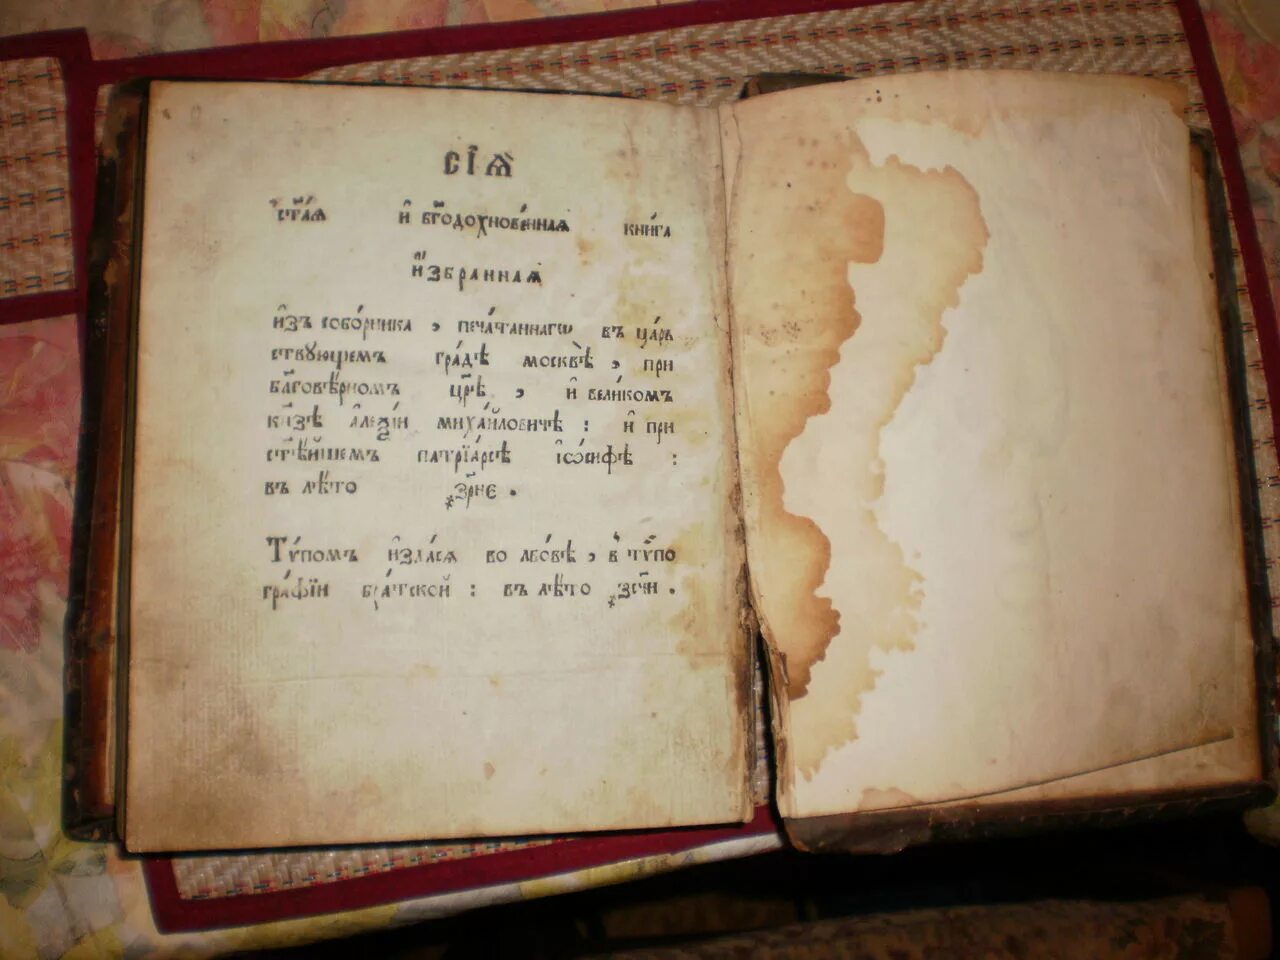 СІѦ҆
С҃таѧ И҆ бг҃одохнове́ннаѧ кни́га
И҆збраннаѧ
и҆зъ собо́рника , печа́таннагѡ въ ца́рь
ствꙋющемъ гра́дѣ москвѣ̀ , при
блг҃овѣ́рномъ цр҃ѣ , и҆ вели́комъ
кн҃зѣ а҆леѯі́и миха́йловичѣ : и҆ при
ст҃ѣ́йшемъ патрїа́рсѣ і҆ѡ́сифѣ :
въ лѣ́то ҂зрн҃е .
Тѵ́помъ и҆зда́сѧ во льво́вѣ , в̾ тѵ́по
гра́фїи бра́тской : въ лѣ́то ҂зс҃чи .